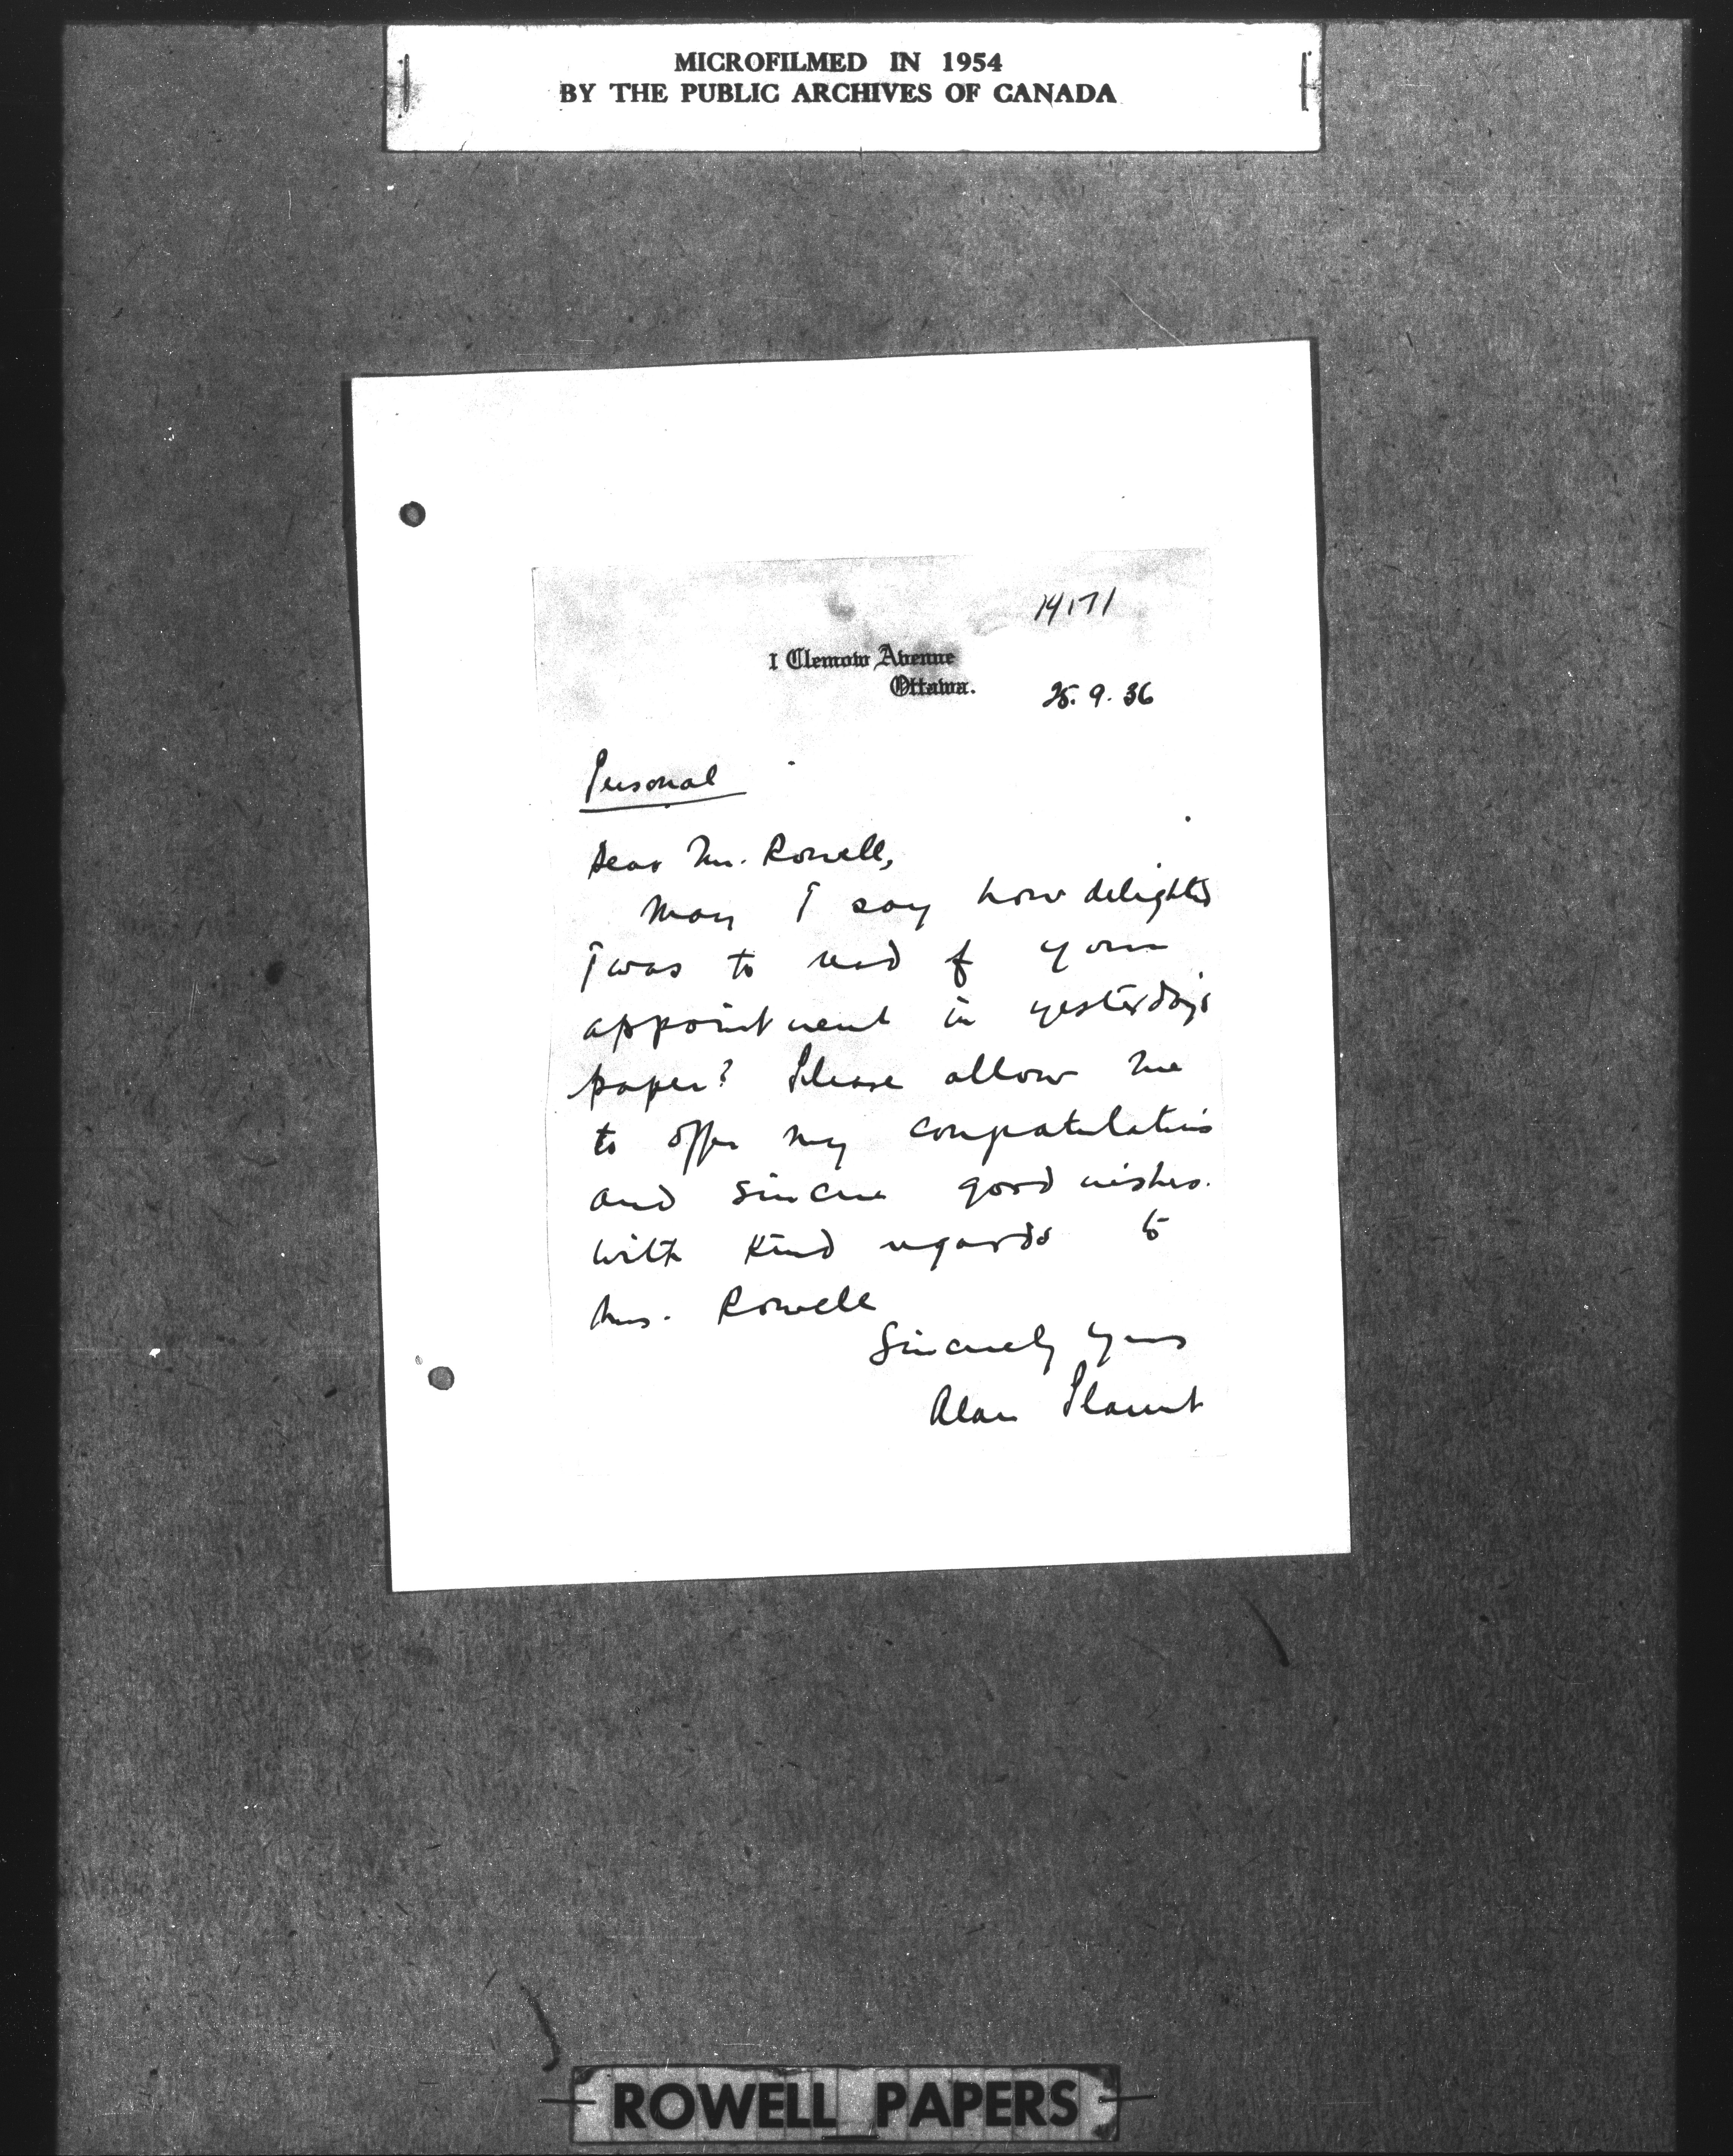 MICROFILMED IN 1954
BY THE PUBLIC ARCHIVES OF CANADA
14171
1 Clemow Avenue
Ottawa.
25. 9. 36
Personal
Dear Mr. Rowell,
May I say how delighted
I was to read of your
appointment in yesterday's
paper? Please allow me
to offer my congratulations
and sincere good wishes.
With kind regards to
Mrs. Rowell
Sincerely yours
Alan Plaunt
ROWELL PAPERS